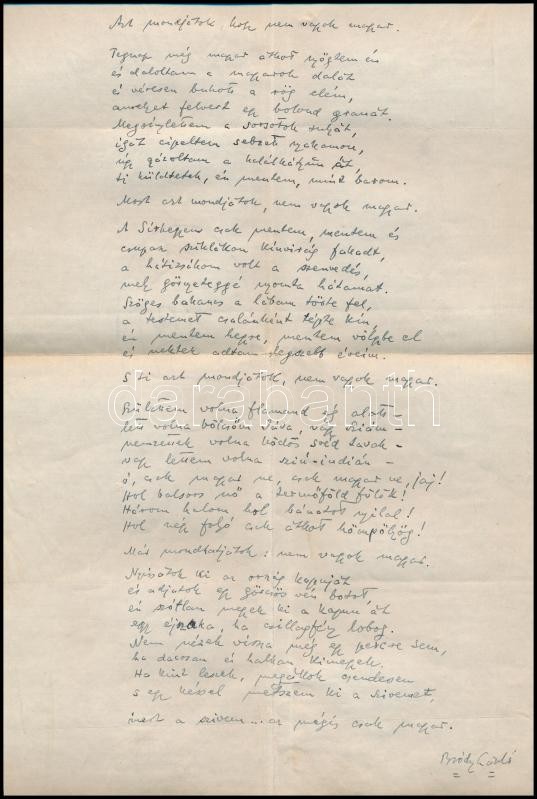 Azt mondjátok, hogy nem vagyok magyar.
Tegnap még magyar átkot nyögtem én
és daloltam a magyarok dalát
s véresen bukott a rög elém,
amelyet felvert egy bolond gránát.
Megsinylettem a sorsotok sulyát,
igát cipeltem sebzett nyakamon,
ugy gázoltam a halálkátyun át,
ti küldtetek, én mentem, mint barom.
Most azt mondjátok, nem vagyok magyar.
A csak mentem, mentem és
csupasz sziklákon kinvirág fakadt,
a hátizsákom volt a szenvedés,
mely görnyeteggé nyomta hátamat.
Szöges bakancs a lábam törte fel,
a testemet csalánként tépte kin,
én mentem hegyre, mentem völgybe el
és nektek adtam legszebb éveim.
S ti azt mondjátok, nem vagyok magyar.
Születtem volna flamand ég alatt -
lett volna bölcsőm Jáva, vagy Sziám -
nemzettek volna ködös svéd tavak -
vagy lettem volna sziú-indián -
ó, csak magyar ne, csak magyar ne, jaj!
Hol balsors nő a termőföld fölött!
Három halom hol bánatot nyilal!
Hol négy folyó csak átkot hömpölyög!
Már mondhatjátok: nem vagyok magyar.
Nyissátok ki az ország kapuját
és adjatok egy görcsös vén botot
én szótlan megyek ki a kapun át
egy éjszaka, ha csillagfény lobog.
Nem nézek vissza még egy percre sem,
ha dacosan és halkan kimegyek.
Ha kint leszek, megállok csendesen
s egy késsel metszem ki a szivemet,
mert a szivem... az mégis csak magyar.
Bródy László
darabanth